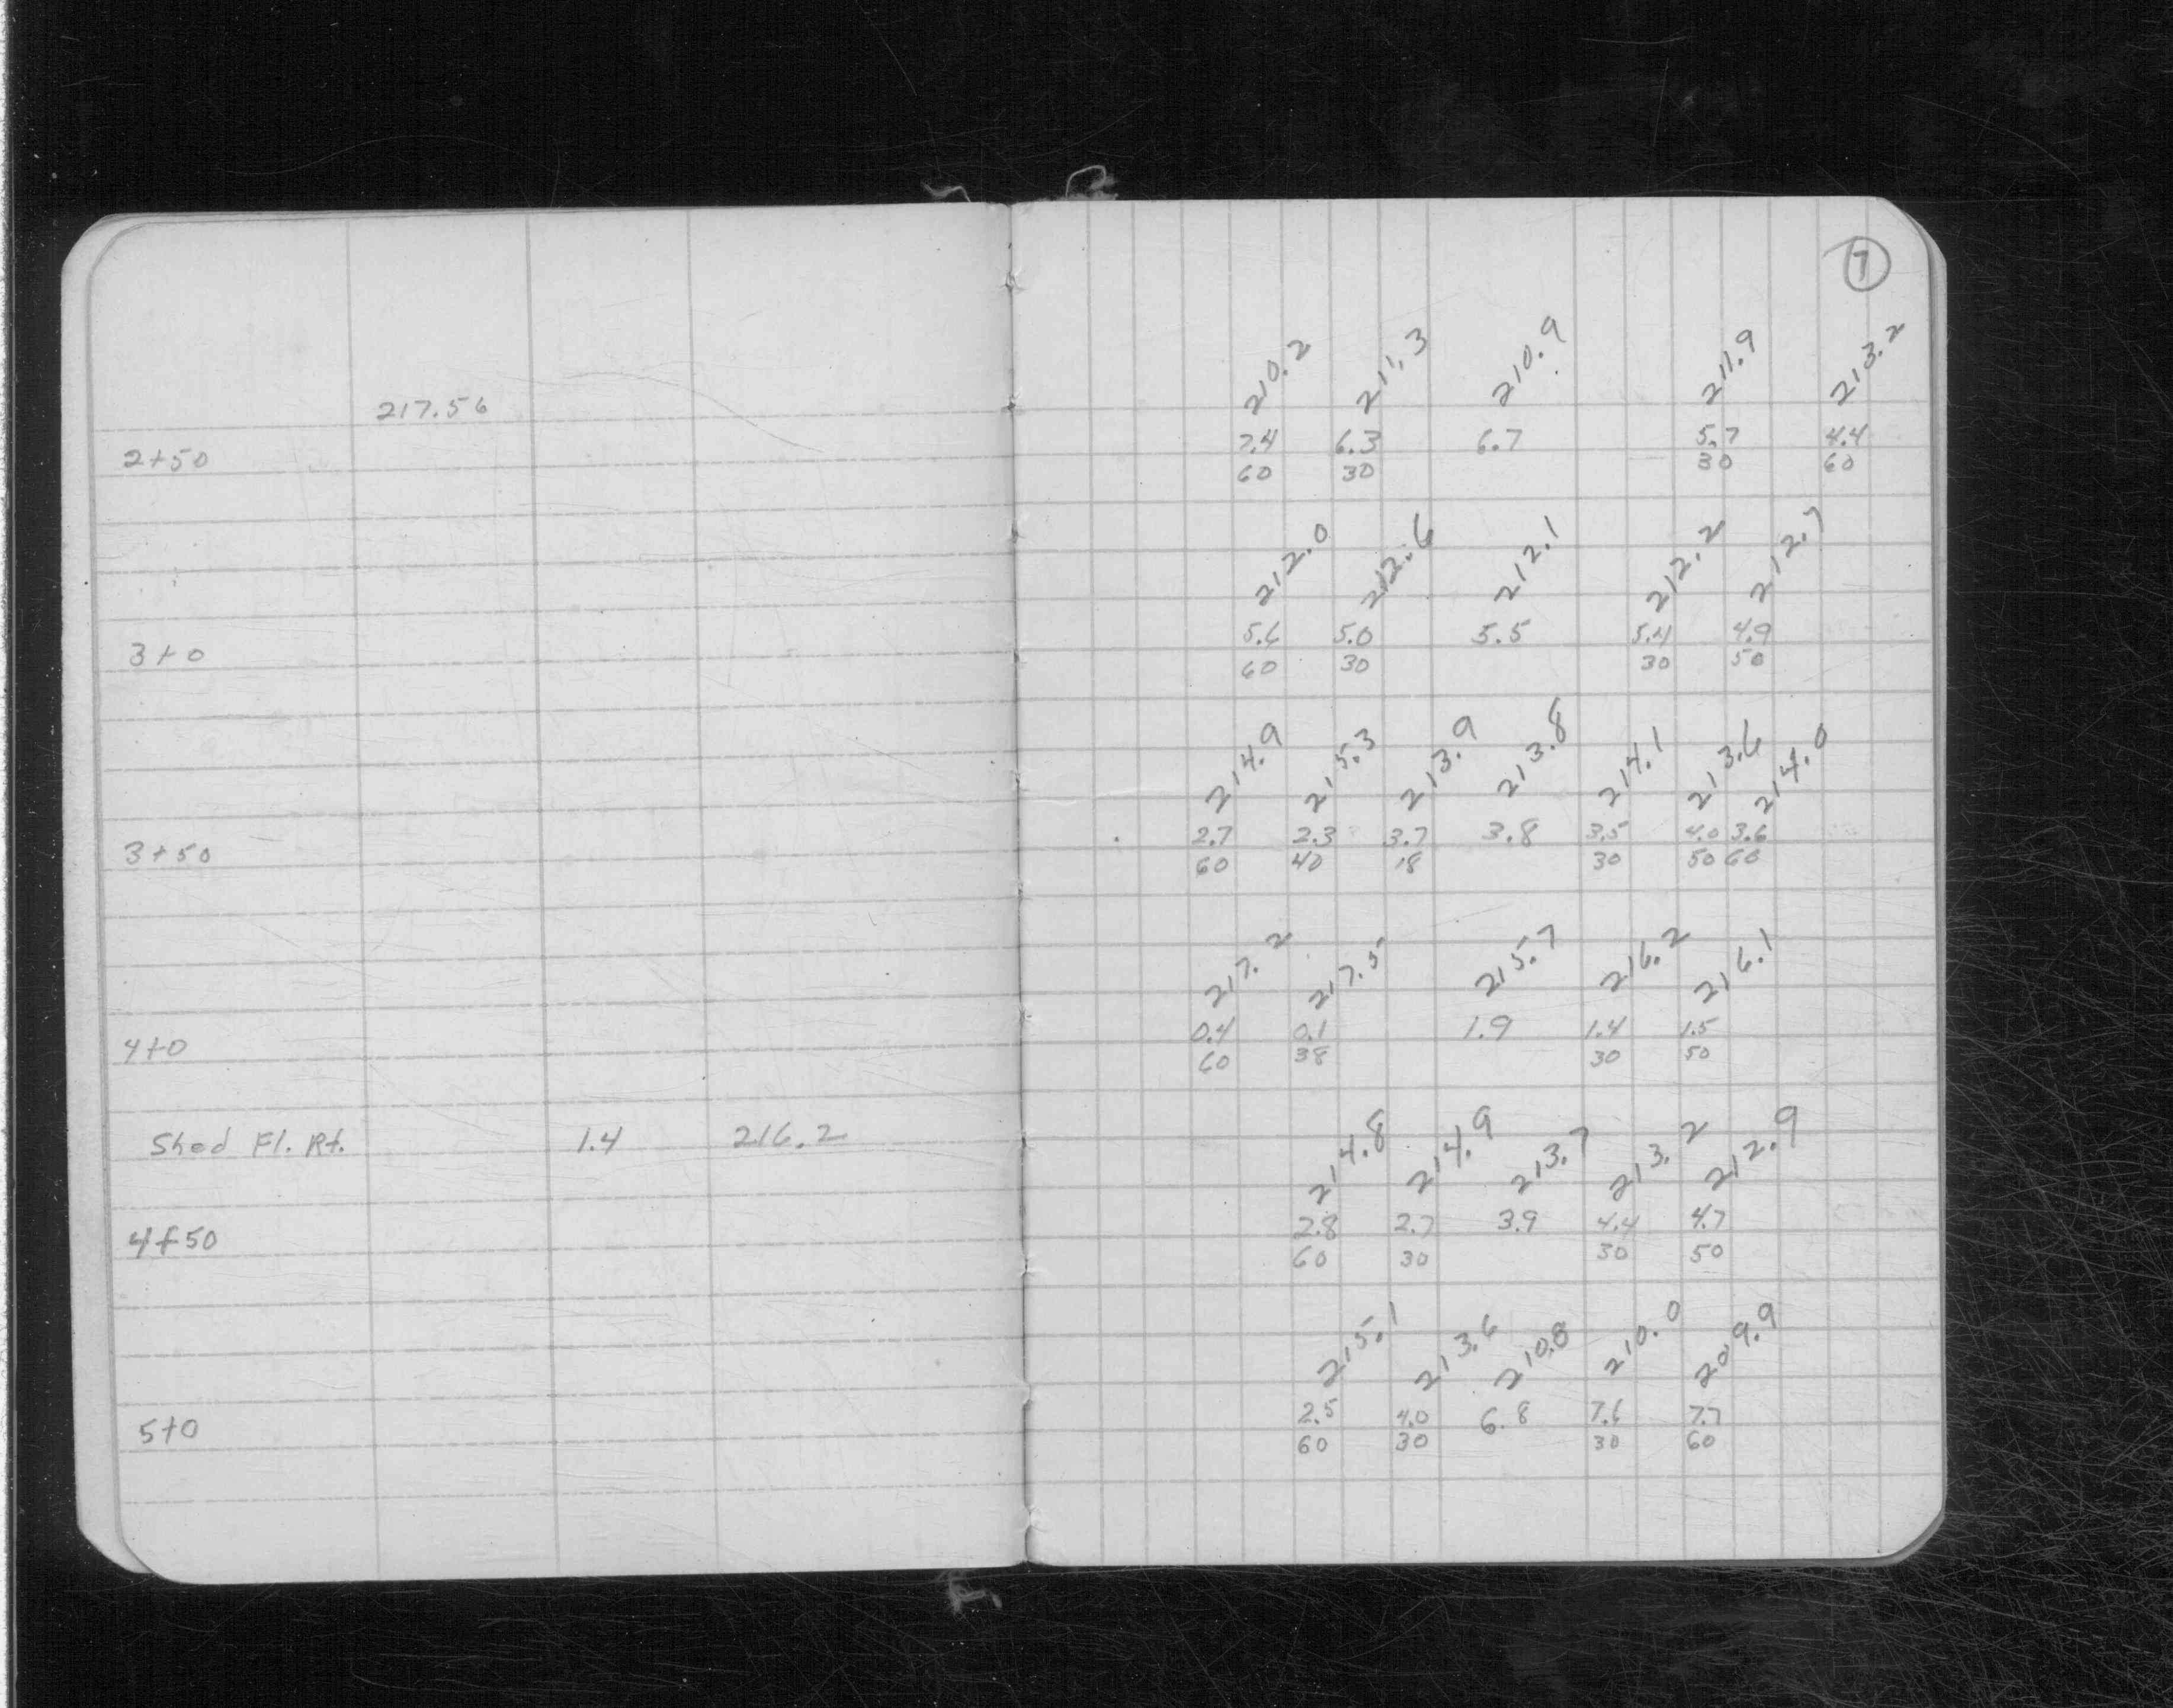 7
217.56
210.2 211.3 210.9 211.9 213.2
2+50 7.4 6.3 6.7 5.7 4.4
60 30 30 60
212.0 212.6 212.1 212.2 212.7
3+0 5.6 5.0 5.5 5.4 4.9
60 30 30 50
214.9 215.3 213.9 213.8 214.1 213.6 214.0
3+50 2.7 2.3 3.7 3.8 3.5 4.0 3.6
60 40 18 30 50 60
217.2 217.5 215.7 216.2 216.1
4+0 0.4 0.1 1.9 1.4 1.5
60 38 30 50
Shed Fl. Rt. 1.4 216.2
214.8 214.9 213.7 213.2 212.9
4+50 2.8 2.7 3.9 4.4 4.7
60 30 30 50
215.1 213.6 210.8 210.0 209.9
5+0 2.5 4.0 6.8 7.6 7.7
60 30 30 60